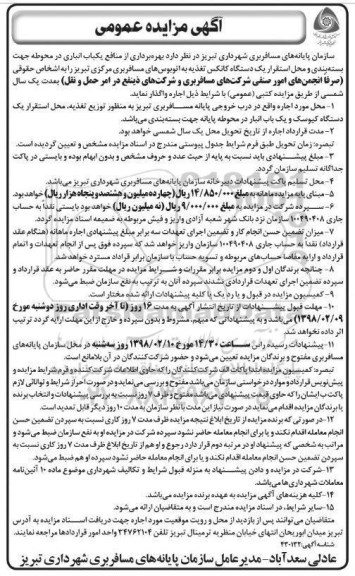 آگهی مزایده عمومی
سازمان پایانه‌های مسافربری شهرداری تبریز در نظر دارد بهره‌برداری از منافع یکباب انباری در محوطه جهت
بسته‌بندی و محل استقرار یک دستگاه کانکس تغذیه به اتوبوس‌های مسافربری مرکزی تبریز را به اشخاص حقوقی
(صرفا انجمن‌های امور صنفی شرکت‌های مسافربری و شرکت‌های ذینفع در امر حمل و نقل) بمدت یک سال
شمسی از طریق مزایده کتبی (عمومی) با شرایط ذیل اجاره واگذار نماید.
۱- محل مورد اجاره واقع در درب خروجی پایانه مسافربری تبریز به منظور توزیع تغذیه، محل استقرار یک
دستگاه کیوسک و یک باب انبار در محوطه پایانه جهت بسته‌بندی می‌باشد.
۲- مدت قرارداد اجاره از تاریخ تحویل محل یک سال شمسی خواهد بود.
تبصره: زمان تحویل طبق فرم شرایط جدول پیوستی مندرج در اسناد مزایده مشخص و تعیین گردیده است.
۳- مبلغ پیشنهادی باید نسبت به پایه از حیث عدد و حروف مشخص و بدون ابهام بوده و بایستی در پاکت
جداگانه تسلیم سازمان گردد.
۴- محل تسلیم پاکت پیشنهادات دبیرخانه سازمان پایانه‌های مسافربری شهرداری تبریز می‌باشد.
۵- مبنای پایه مزایده ماهانه به مبلغ ۱۴/۸۵۰/۰۰۰ ریال (چهارده میلیون و هشتصد و پنجاه هزار ریال) خواهد بود.
۶- سپرده شرکت در مزایده به مبلغ ۹/۰۰۰/۰۰۰ ریال (نه میلیون ریال) خواهد بود بایستی نقدا به حساب
جاری ۱۰۰۴۹۰۴۰۸ سازمان نزد بانک شهر شعبه آزادی واریز و فیش مربوطه به ضمیمه اسناد مزایده گردد.
۷- میزان تضمین حسن انجام کار و تضمین اجرای تعهدات سه برابر مبلغ پیشنهادی اجاره ماهانه (هنگام عقد
قرارداد) نقدا به حساب جاری ۱۰۰۴۹۰۴۰۸ سازمان واریز خواهد شد که سپرده فوق پس از انجام تعهدات و اتمام
قرارداد و ارایه مفاصا حساب‌های مربوطه و تسویه حساب با سازمان برابر قرارداد مسترد خواهد شد.
۸- چنانچه برندگان اول و دوم مزایده برابر مقررات و شرایط مزایده در مهلت مقرر حاضر به عقد قرارداد و
سپردن تضمین اجرای تعهدات قراردادی نشدند سپرده آنان به ترتیب به نفع سازمان ضبط می‌شود.
۹- کمیسیون مزایده در قبول و یا رد یک یا کلیه پیشنهادات ارائه شده مختار است.
۱۰- مهلت قبول پیشنهادات از تاریخ انتشار آگهی به مدت ۱۶ روز (تا آخر وقت اداری روز دوشنبه مورخ
۱۳۹۸/۰۲/۰۹) می‌باشد و به پیشنهاداتی که مبهم، مشروط و بدون سپرده و خارج از این مهلت ارایه گردد ترتیب
اثر داده نخواهد شد.
۱۱- پیشنهادات رسیده راس ساعت ۱۴/۳۰ مورخ ۱۳۹۸/۰۲/۱۰ روز سه‌شنبه در محل سازمان پایانه‌های
مسافربری مفتوح و برندگان مزایده تعیین می‌شود و حضور شرکت‌کنندگان در آن بلامانع است.
تبصره: کمیسیون مزایده ابتدا پاکات الف شرکت‌کنندگان را که حاوی اطلاعات شرکت‌کننده و فرم شرایط مزایده و
پیش‌نویس قرارداد و موارد درخواستی سازمان می‌باشد مفتوح و بررسی می‌نماید و در صورت احراز شرایط و توانائی لازم
پاکت ب ایشان را که حاوی قیمت پیشنهادی می‌باشد مفتوح و ظرف ۷ روز نسبت به بررسی پیشنهادات و انتخاب برنده
یا برندگان مزایده اقدام می‌نماید در صورت نیاز این مدت با نظر سازمان به مدت ۱۰ روز دیگر قابل تمدید است.
۱۲- در صورتی که برنده مزایده از تاریخ ابلاغ نتیجه مزایده ظرف مدت ۷ روز کاری نسبت به سپردن تضمین حسن
انجام معامله اقدام نکند و یا برای انجام معامله حاضر نشود سپرده شرکت در مزایده او به نفع سازمان ضبط می‌شود و
مراتب به شخصی که پیشنهاد او در مرتبه دوم قرار دارد رجوع و او هم از تاریخ ابلاغ ظرف مدت ۷ روز کاری نسبت به
سپردن تضمین حسن انجام معامله اقدام نکند و یا برای انجام معامله حاضر نشود سپرده او هم ضبط می‌شود.
۱۳- شرکت در مزایده و دادن پیشنهاد به منزله قبول شرایط و تکالیف شهرداری موضوع ماده ۱۰ آئین‌نامه
معاملات شهرداری‌ها می‌باشد.
۱۴- کلیه هزینه‌های آگهی مزایده به عهده برنده مزایده می‌باشد.
۱۵- سایر شرایط، در اسناد مزایده مندرج است و به متقاضیان ارائه می‌شود.
متقاضیان می‌توانند پس از بازدید از محل و رویت موقعیت مورد اجاره جهت دریافت اسناد مزایده به آدرس
تبریز میدان ابوریحان انتهای خیابان منظریه ترمینال تبریز تلفن ۳۴۷۶۲۱۰۴ واحد امور قراردادها مراجعه نمایند.
شناسه آگهی: ۴۳۰۱۲۲
عادلی سعدآباد - مدیرعامل سازمان پایانه‌های مسافربری شهرداری تبریز